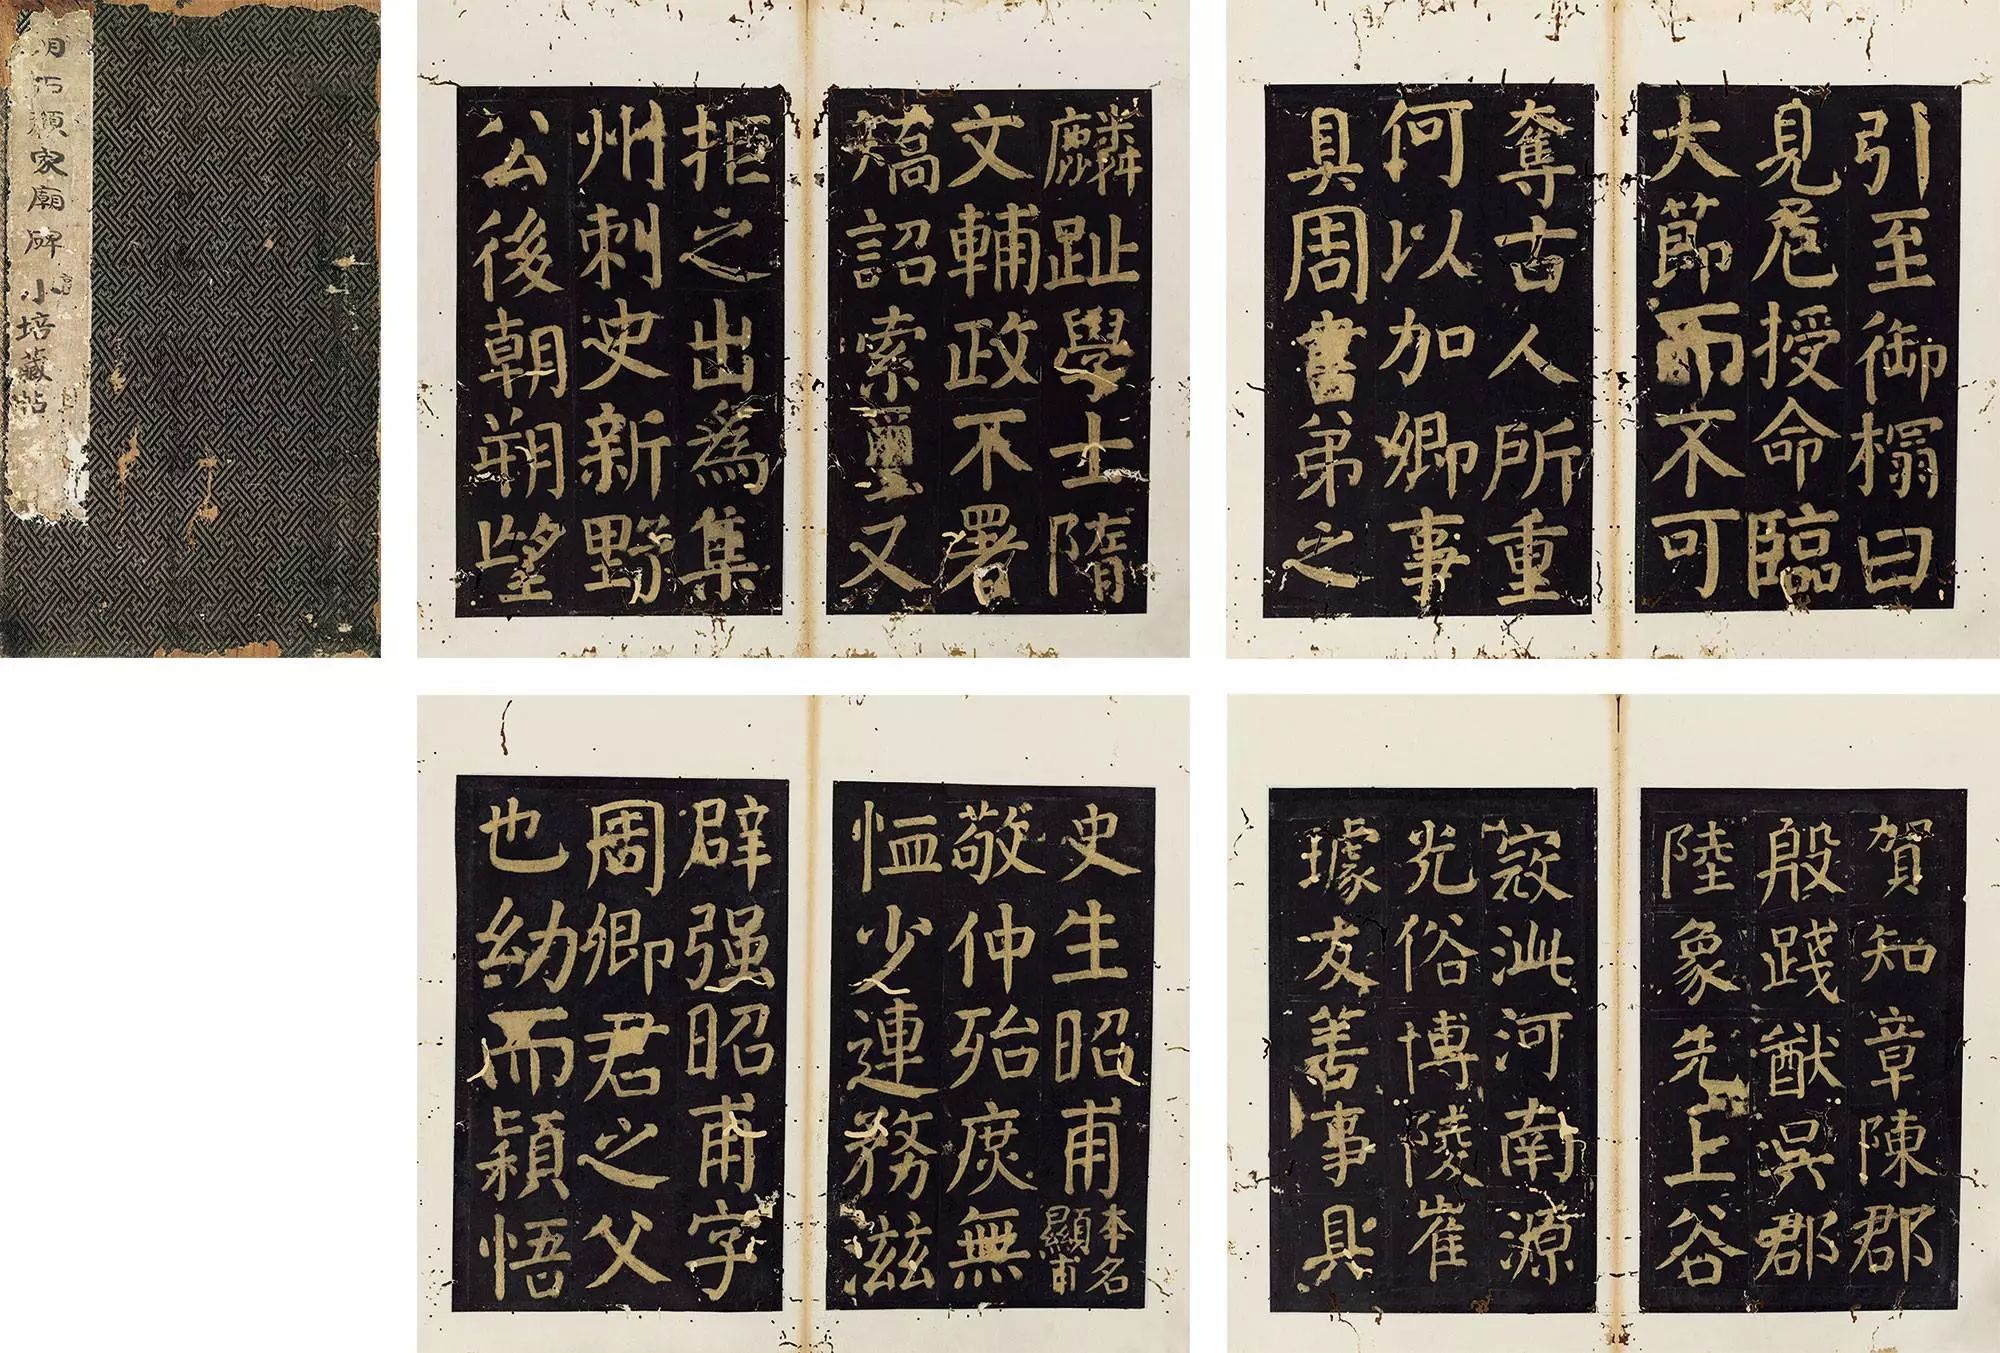 明拓顏家廟碑 小培藏帖
麟趾學士隋
文輔政不署
矯詔索璽又
拒之出爲集
州刺史新野
公後朝朔望
引至御榻曰
見危授命臨
大節而不可
奪古人所重
何以加卿事
具周書弟之
史生昭甫本名顯甫
敬仲殆庶無
恤少連務滋
辟强昭甫字
周卿君之父
也幼而穎悟
賀知章陳郡
殷踐猷吳郡
陸象先上谷
寇泚河南源
光俗博陵崔
璩友善事具